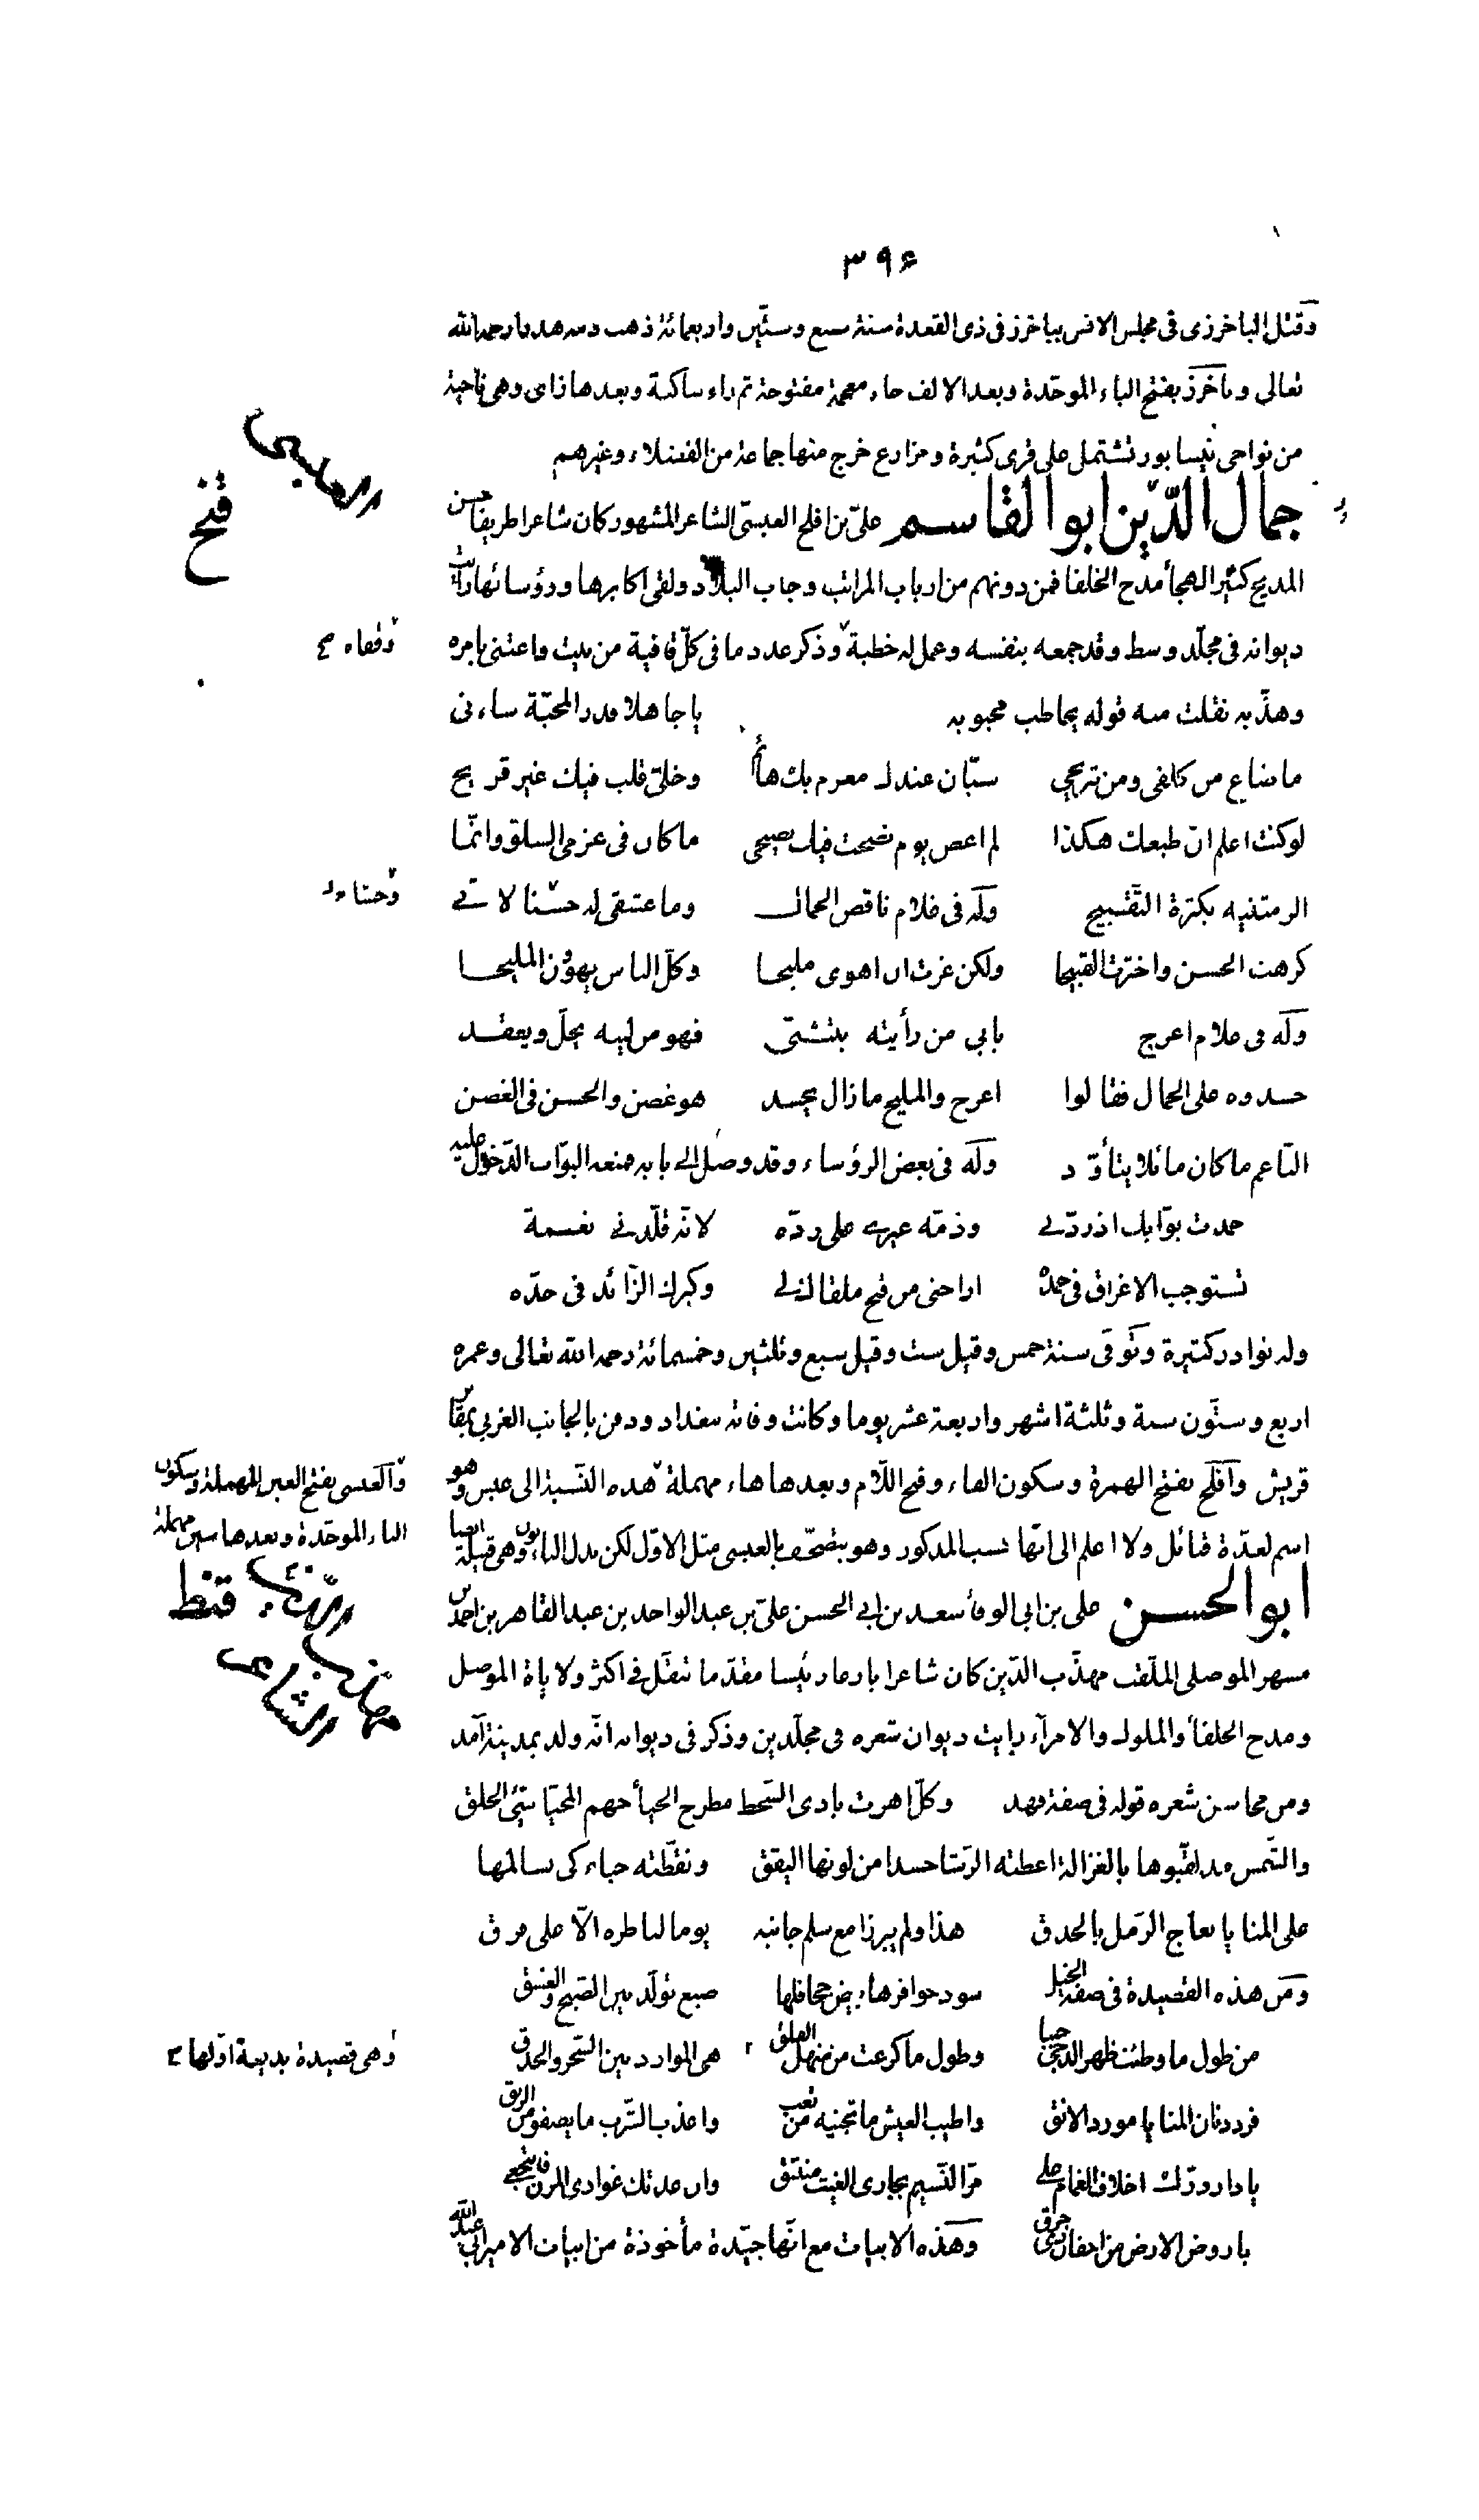 ۳۹۶
وقتل الباخرزى فى مجلس الانس بباخرز فى ذى القعدة سنة سبع وستّين واربعمائة ذهب دمه هدرا رحمه الله
تعالى وباخرز بفتح الباء الموحّدة وبعد الالف خاء معجمة مفتوحة ثم راء ساكنة وبعدها زاى وهى ناحية
من نواحى نيسابور تشتمل على قرى كثيرة ومزارع خرج منها جماعة من الفضلاء وغيرهم
جمال الدّين ابو القاسم علىّ بن افلح العبسىّ الشاعر المشهور كان شاعرا ظريفا حسن
المديح كثير الهجأ مدح الخلفا فمن دونهم من ارباب المراتب وجاب البلاد ولقى اكابرها ورؤسائها رأيت
ديوانه فى مجلّد وسط وقد جمعه بنفسه وعمل له خطبة وذكر عدد ما فى كلّ قافية من بيت واعتنى بامره
وقفاه
وهذّبه نقلت منه قوله يخاطب محبوبه يا جاهلا قدر المحبّة ساءنى
ما ضاع من كلفى ومن تبريحى سيّان عندك مغرم بك هائم وخلىّ قلب فيك غير قريح
لو كنت اعلم انّ طبعك هكذا لم اعص يوم نصحت فيك نصيحى ما كان فى عزمى السلوّ وانّما
الزمتنيه بكثرة التّقبيح وله فى غلام ناقص الجمال وما عشقى له حسنا لانّى
وحشا
كرهت الحسن واخترت القبيحا ولكن غرت ان اهوى مليحا وكلّ الناس يهوون المليحا
وله فى غلام اعرج بابى من رأيته يتثنّى فهو من لينه يحلّ ويعقد
حسدوه على الجمال فقالوا اعرج والمليح ما زال يحسد هو غصن والحسن فى الغصن
النّاعم ما كان مائلا يتأوّد وله فى بعض الرؤساء وقد وصل الى بابه فمنعه البوّاب الدّخول عليه
حمدت بوّابك اذ ردّنى وذمّه غيرى على ردّه لانّه قلّدنى نعمة
تستوجب الاغراق فى حمده اراحنى من قبح ملقاك لى وكبرك الزّائد فى حدّه
وله نوادر كثيرة وتوفّى سنة خمس وقيل ست وقيل سبع وثلثين وخمسمائة رحمه الله تعالى وعمره
اربع وستّون سنة وثلثة اشهر واربعة عشر يوما وكانت وفاته ببغداد ودفن بالجانب الغربى بمقابر
قريش وافلح بفتح الهمزة وسكون الفاء وفتح اللّام وبعدها حاء مهملة هذه النّسبة الى عبس وهو
والعبسى بفتح العين المهملة وسكون
الباء الموحّدة وبعدها سين مهملة
اسم لعدّة قبائل ولا اعلم الى ايّها نسب المذكور وهو يتصحّف بالعبسى مثل الاوّل لكن بدل الباء نون وهى قبيلة ايضا
ابو الحسن على بن ابى الوفأ سعد بن ابى الحسن علىّ بن عبد الواحد بن عبد القاهر بن احمد بن
مسهر الموصلى الملقّب مهذّب الدّين كان شاعرا بارعا رئيسا مقدّما تنقّل فى اكثر ولاياة الموصل
ومدح الخلفأ والملوك والامرآء رايت ديوان شعره فى مجلّدين وذكر فى ديوانه انّه ولد بمدينة آمد
ومن محاسن شعره قوله فى صفة فهد وكلّ اهرت بادى السّخط مطرح الحيأ جهم المحيّا سيّئ الخلق
والشّمس مذ لقّبوها بالغزالة اعطته الرّشا حسدا من لونها اليقق ونقّطته حباء كى يسالمها
على المنايا نعاج الرّمل بالحدق هذا ولم يبرزا مع سلم جانبه يوما لناظره الّا على فرق
ومن هذه القصيدة فى صفة الخيل سود حوافرها بيض جحافلها صبغ تولّد بين الصّبح والغسق
من طول ما وطئت ظهر الدجى خببا وطول ما كرعت من منهل الفلق هى الموارد بين السّحر والحدق
وهى قصيدة بديعة اوّلها
فرد دنان المنايا مورد الانق واطيب العيش ما تجنيه من تعب واعذب الشّرب ما يصفو من الرنق
يا دار درّت اخلاف الغمام على مرّ النّسيم بجارى الغيث منبثق وان عدتك غوادى المزن فانتجعى
يا روض الارض من اجفان وهذه الابيات مع انّها جيّدة مأخوذة من ابيات الامير ابى عبد الله